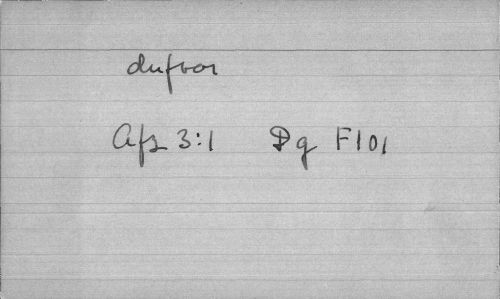 dufvor
Afz 3:1 Dg F101